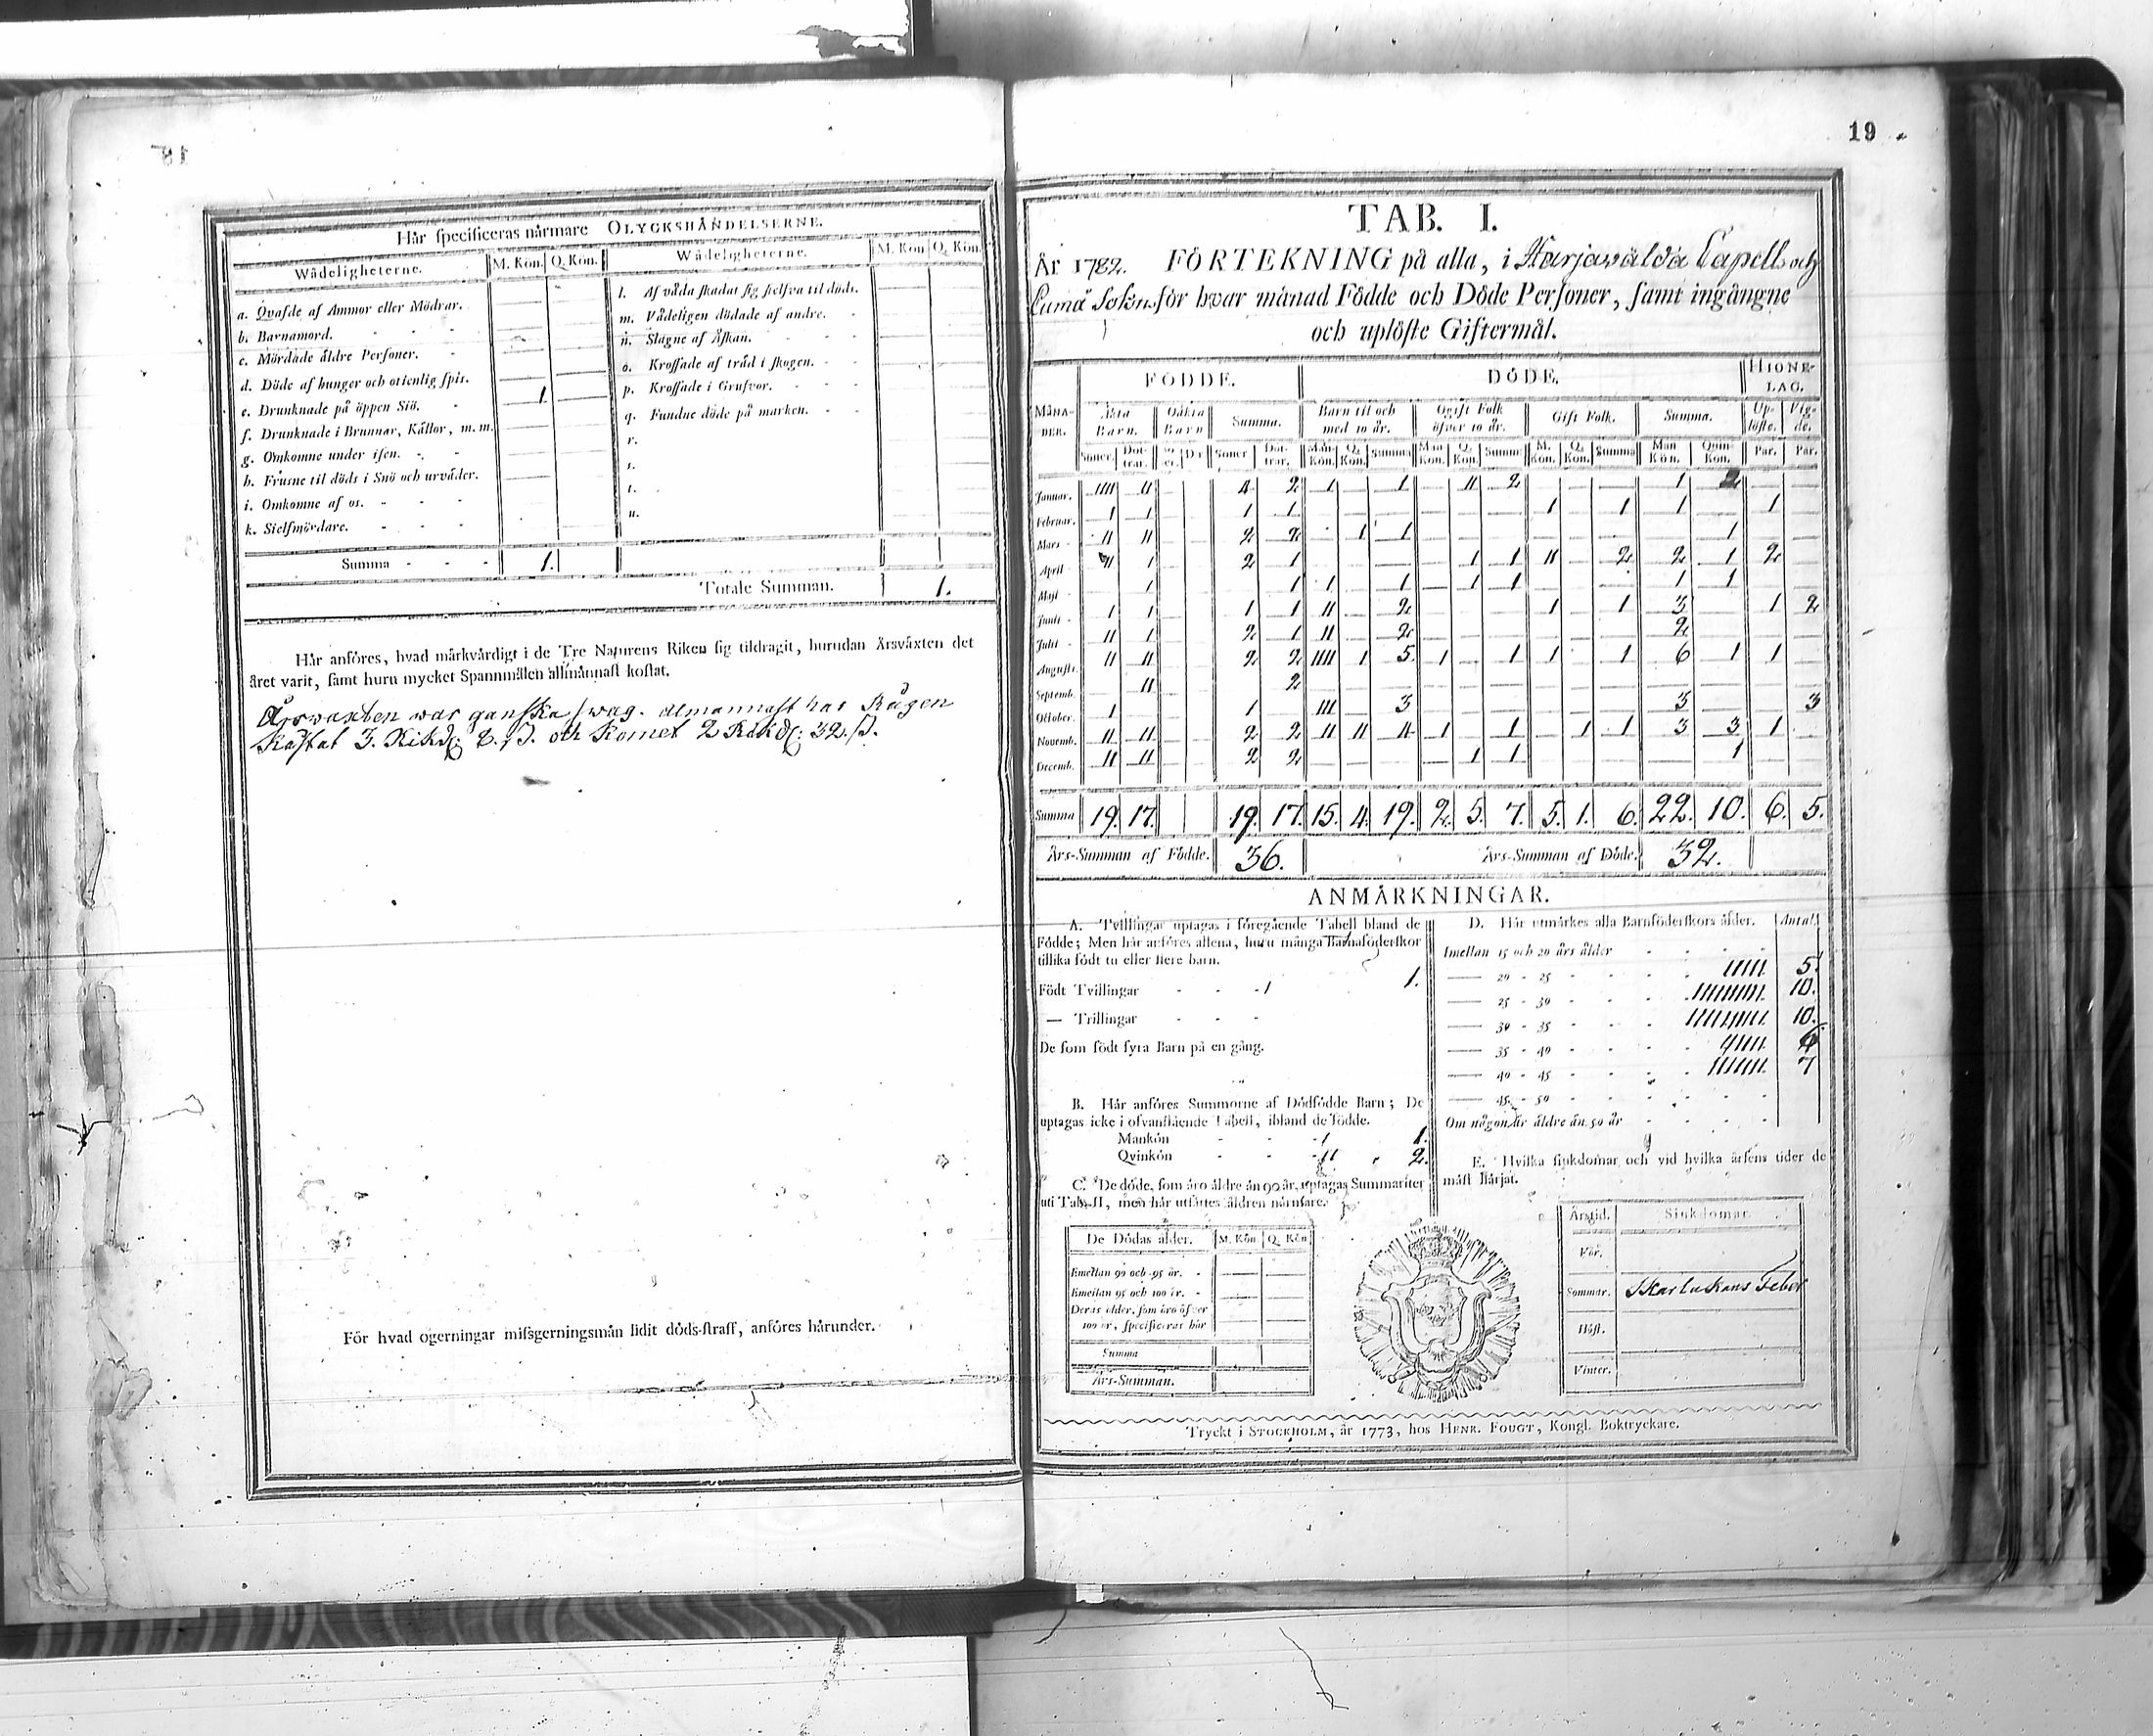 19
Här specificeras närmare OLYCKSHÄNDELSERNE.
Wådeligheterne. M. Kön. Q. Kön. Wådeligheterne. M. Kön Q. Kön.
a. Qvafde af Ammor eller Mödrar. l. Af våda skadat sig sielfva til döds.
b. Barnamord. m. Vådeligen dödade af andre.
c. Mördade äldre Personer. n. Slagne af Åskan.
d. Döde af hunger och otienlig spis. o. Krossade af träd i skogen.
e. Drunknade på öppen Siö. 1. p. Krossade i Grufvor.
f. Drunknade i Brunnar, Källor, m. m. q. Fundne döde på marken.
g. Omkomne under isen. r.
h. Frusne til döds i Snö och urväder. s.
i. Omkomne af os. t.
k. Sielfmördare. u.
Summa 1.
Totale Summan. 1.
Här anföres, hvad märkvärdigt i de Tre Naturens Riken sig tildragit, hurudan Årsväxten det
året varit, samt huru mycket Spannmålen allmännast kostat.
Årswäxten war ganska swag. almännast har Rågen
kåstat 3. Rikd: 8. s. och Kornet 2 Rikd: 32. s.
För hvad ogerningar missgerningsmän lidit döds-straff, anföres härunder.
TAB. I.
År 1782. FÖRTEKNING på alla, i Harjawalda Capell och
Eura Sokn för hvar månad Födde och Döde Personer, samt ingångne
och uplöste Giftermål.
FÖDDE. DÖDE. HIONE-LAG.
MÅNADER. Äkta Barn. Oäkta Barn Summa. Barn til och med 10 år. Ogift Folk öfver 10 år. Gift Folk. Summa. Uplöste. Vigde.
Söner. Döttrar. Söner. D:r Söner Döttrar. Mån-Kön. Q. Kön. Summa Man Kön. Q. Kön. Summ. M. Kön. Q. Kön. Summa Man Kön. Qvin-Kön. Par. Par.
Januar. IIII II 4 2 1 1 II 2 1 2
Februar. 1 1 1 1 1 1 1 1
Mars II II 2 2 1 1 1
April II 1 2 1 1 1 II 2 2 1 2
Maji 1 1 1 1 1 1 1 1
Junii 1 1 1 1 II 2 1 1 3 1 2
Julii II 1 2 1 II 2 2
Augusti. II II 2 2 IIII 1 5. 1 1 1 1 6 1 1
Septemb. II 2
Oktober. 1 1 III 3 3 3
Novemb. II II 2 2 II II 4 1 1 1 1 3 3 1
Decemb. II II 2 2 1 1 1
Summa 19. 17. 19. 17. 15. 4. 19. 2. 5. 7. 5. 1. 6. 22. 10. 6. 5.
Års-Summan af Födde. 36. Års-Summan af Döde. 32.
ANMÄRKNINGAR.
A. Tvillingar uptagas i föregående Tabell bland de
Födde; Men här anföres allena, huru många Barnaföderskor
tillika födt tu eller flere barn.
Födt Tvillingar 1 1.
— Trillingar
De som födt fyra Barn på en gång.
B. Här anföres Summorne af Dödfödde Barn; De
uptagas icke i ofvanstående Tabell, ibland de födde.
Mankön 1 1.
Qvinkön II 2.
C. De döde, som äro äldre än 90 år, uptagas Summariter
uti Tab. II, men här utsättes åldren närmare.
De Dödas ålder. M. Kön Q. Kön
Emellan 90 och 95 år.
Emellan 95 och 100 år.
Deras ålder, som äro öfver
100 år, specificeras här
Summa
Års-Summan.
D. Här utmärkes alla Barnföderskors ålder. Antal
Imellan 15 och 20 års ålder
20 - 25 IIIII. 5.
25 - 30 IIIIIIIIII. 10.
30 - 35 IIIIIIIIII. 10.
35 - 40
40 - 45 IIIIIII. 7
45 - 50
Om någon är äldre än 50 år
E. Hvilka siukdomar och vid hvilka årsens tider de
mäst härjat.
Årstid. Siukdomar.
Vår.
Sommar. Skarlakans Feber
Höst.
Vinter.
Tryckt i STOCKHOLM, år 1773, hos HENR. FOUGT, Kongl. Boktryckare.